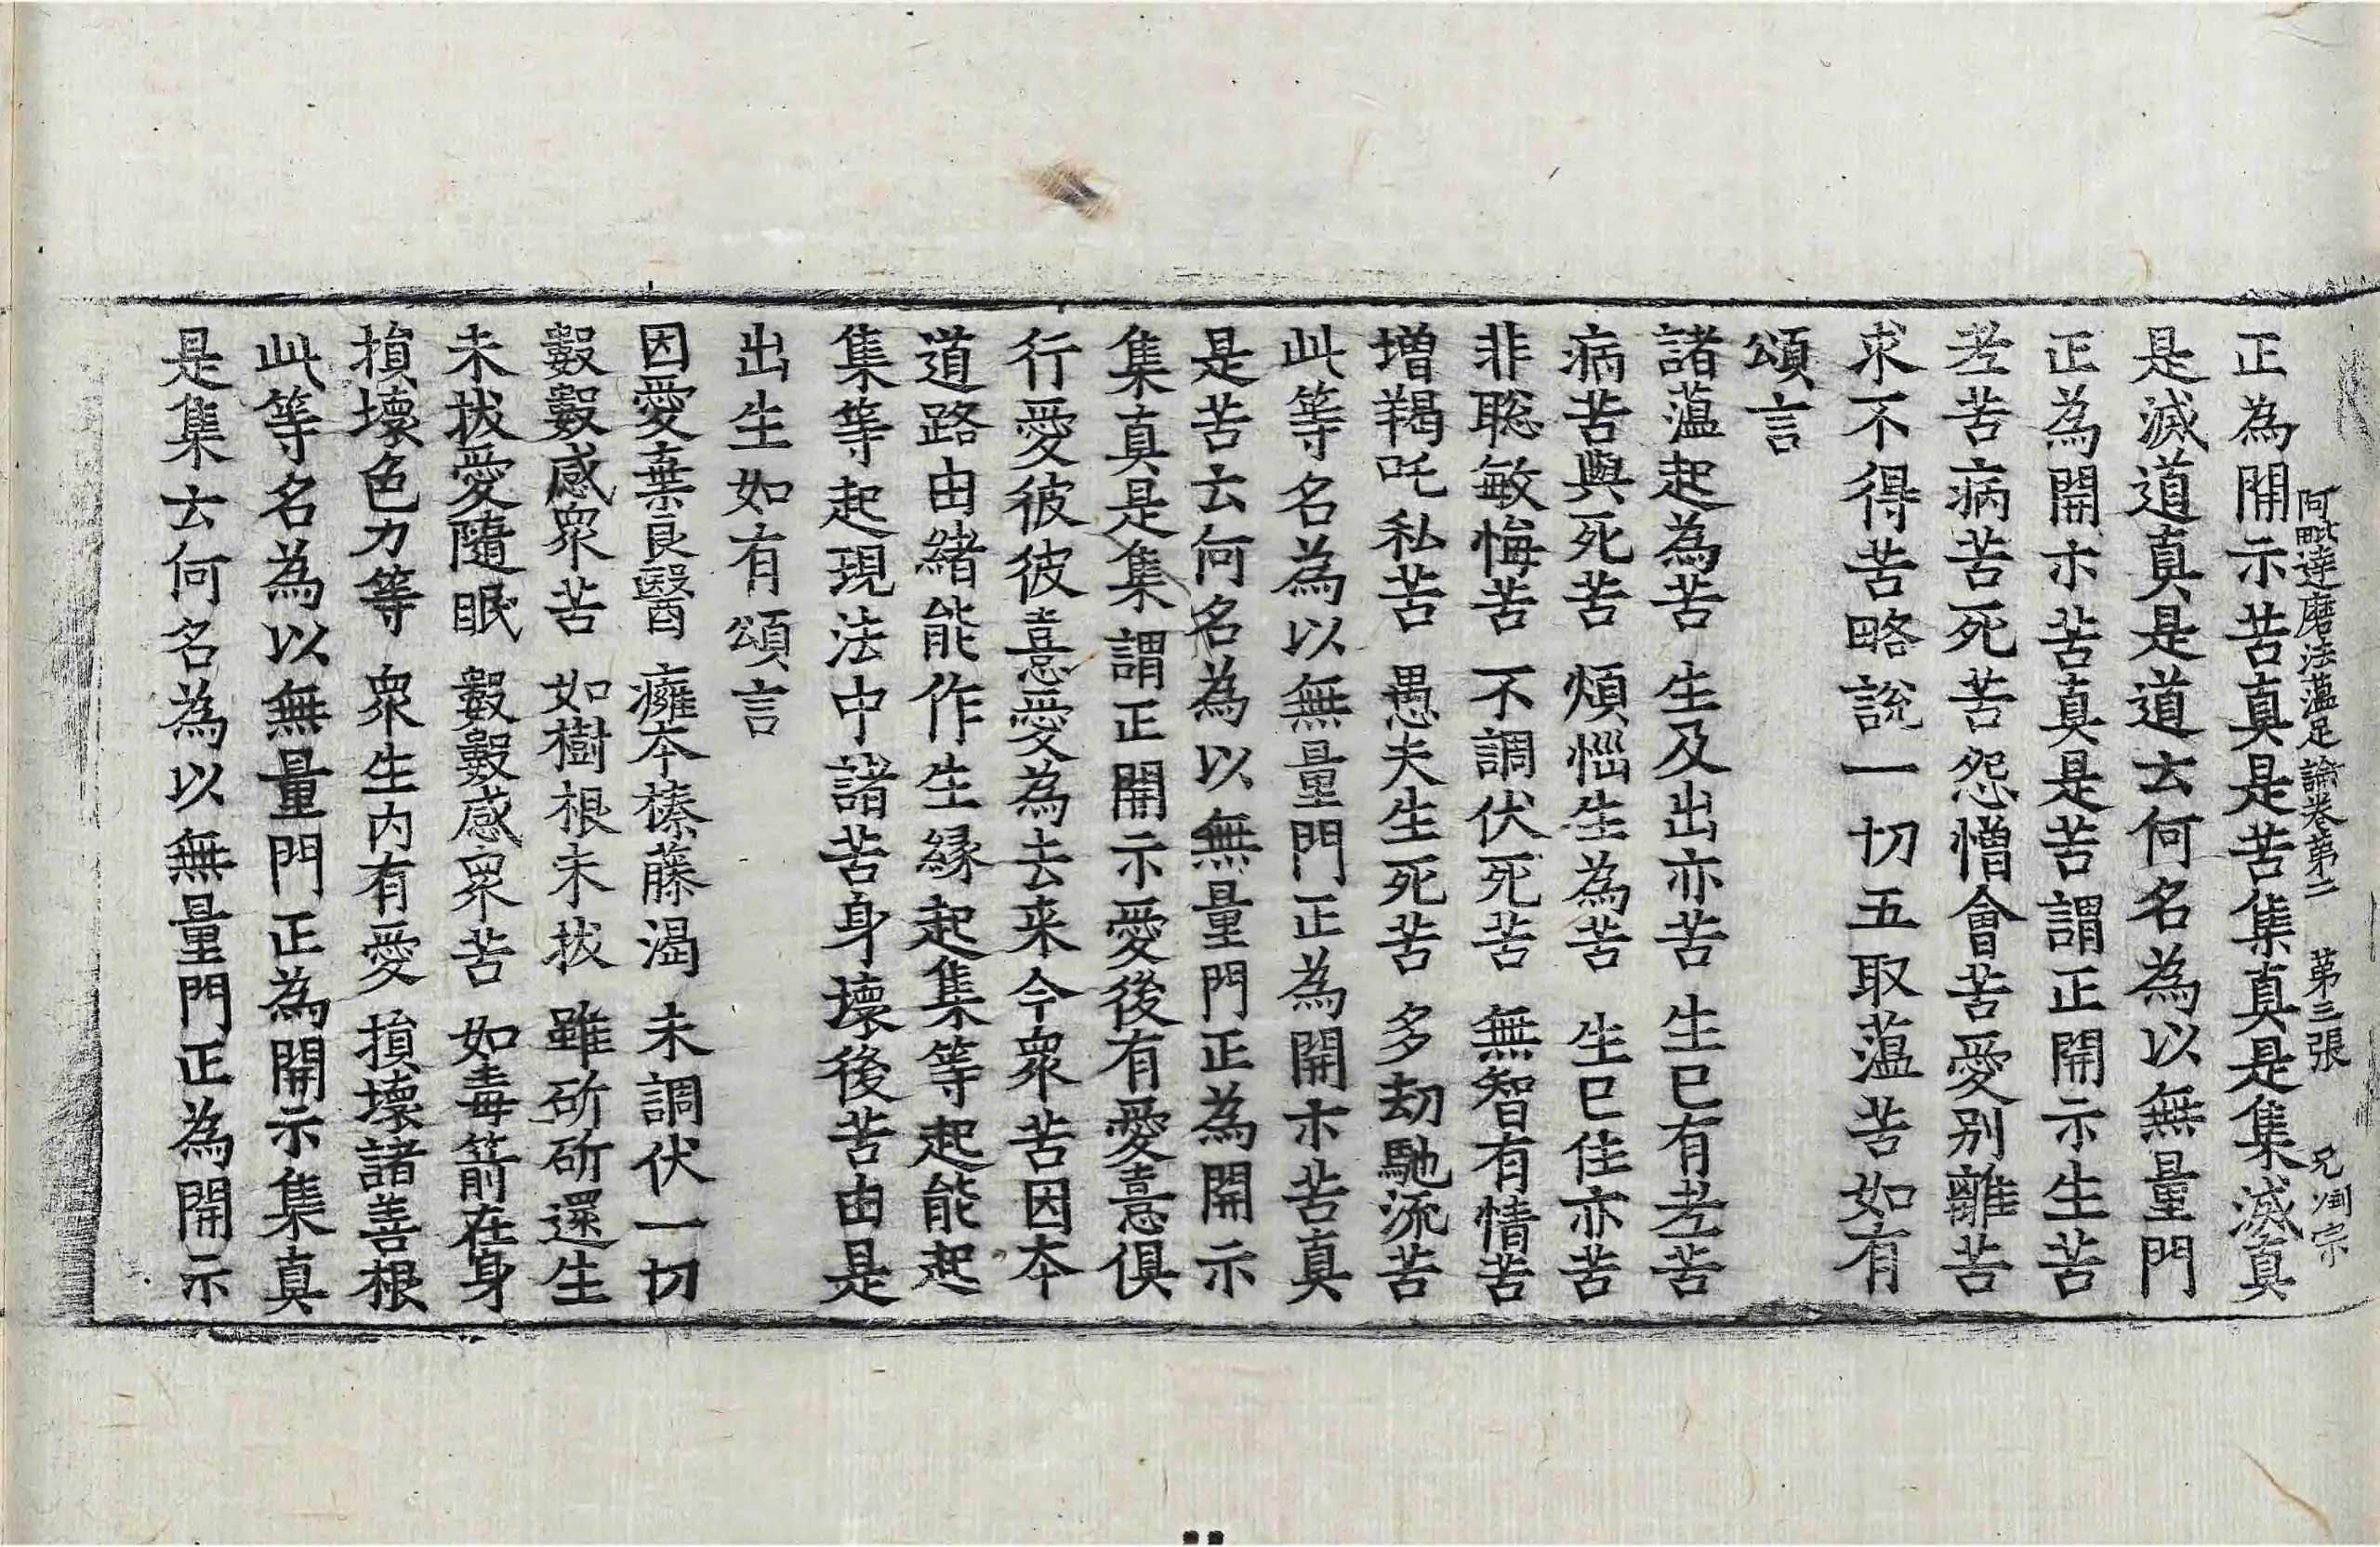 阿毗達磨法蘊足論卷第二 第三張 兄 宗
正為開示苦真是苦集真是集滅真
是滅道真是道云何名為以無量門
正為開示苦真是苦謂正開示生苦
老苦病苦死苦怨憎會苦愛別離苦
求不得苦略說一切五取蘊苦如有
頌言
諸蘊起為苦 生及出亦苦 生已有老苦
病苦與死苦 煩惱生為苦 生已住亦苦
非聡敏悔苦 不調伏死苦 無智有情苦
増羯吒私苦 愚夫生死苦 多劫馳流苦
此等名為以無量門正為開示苦真
是苦云何名為以無量門正為開示
集真是集謂正開示愛後有愛憙俱
行愛彼彼憙愛為去来今衆苦因本
道路由緒能作生緣起集等起能起
集等起現法中諸苦身壞後苦由是
出生如有頌言
因愛棄良醫 癰本榛藤渴 未調伏一切
數數感衆苦 如樹根未拔 雖斫斫還生
未拔愛隨眠 數數感衆苦 如毒箭在身
損壞色力等 衆生内有愛 損壞諸善根
此等名為以無量門正為開示集真
是集云何名為以無量門正為開示